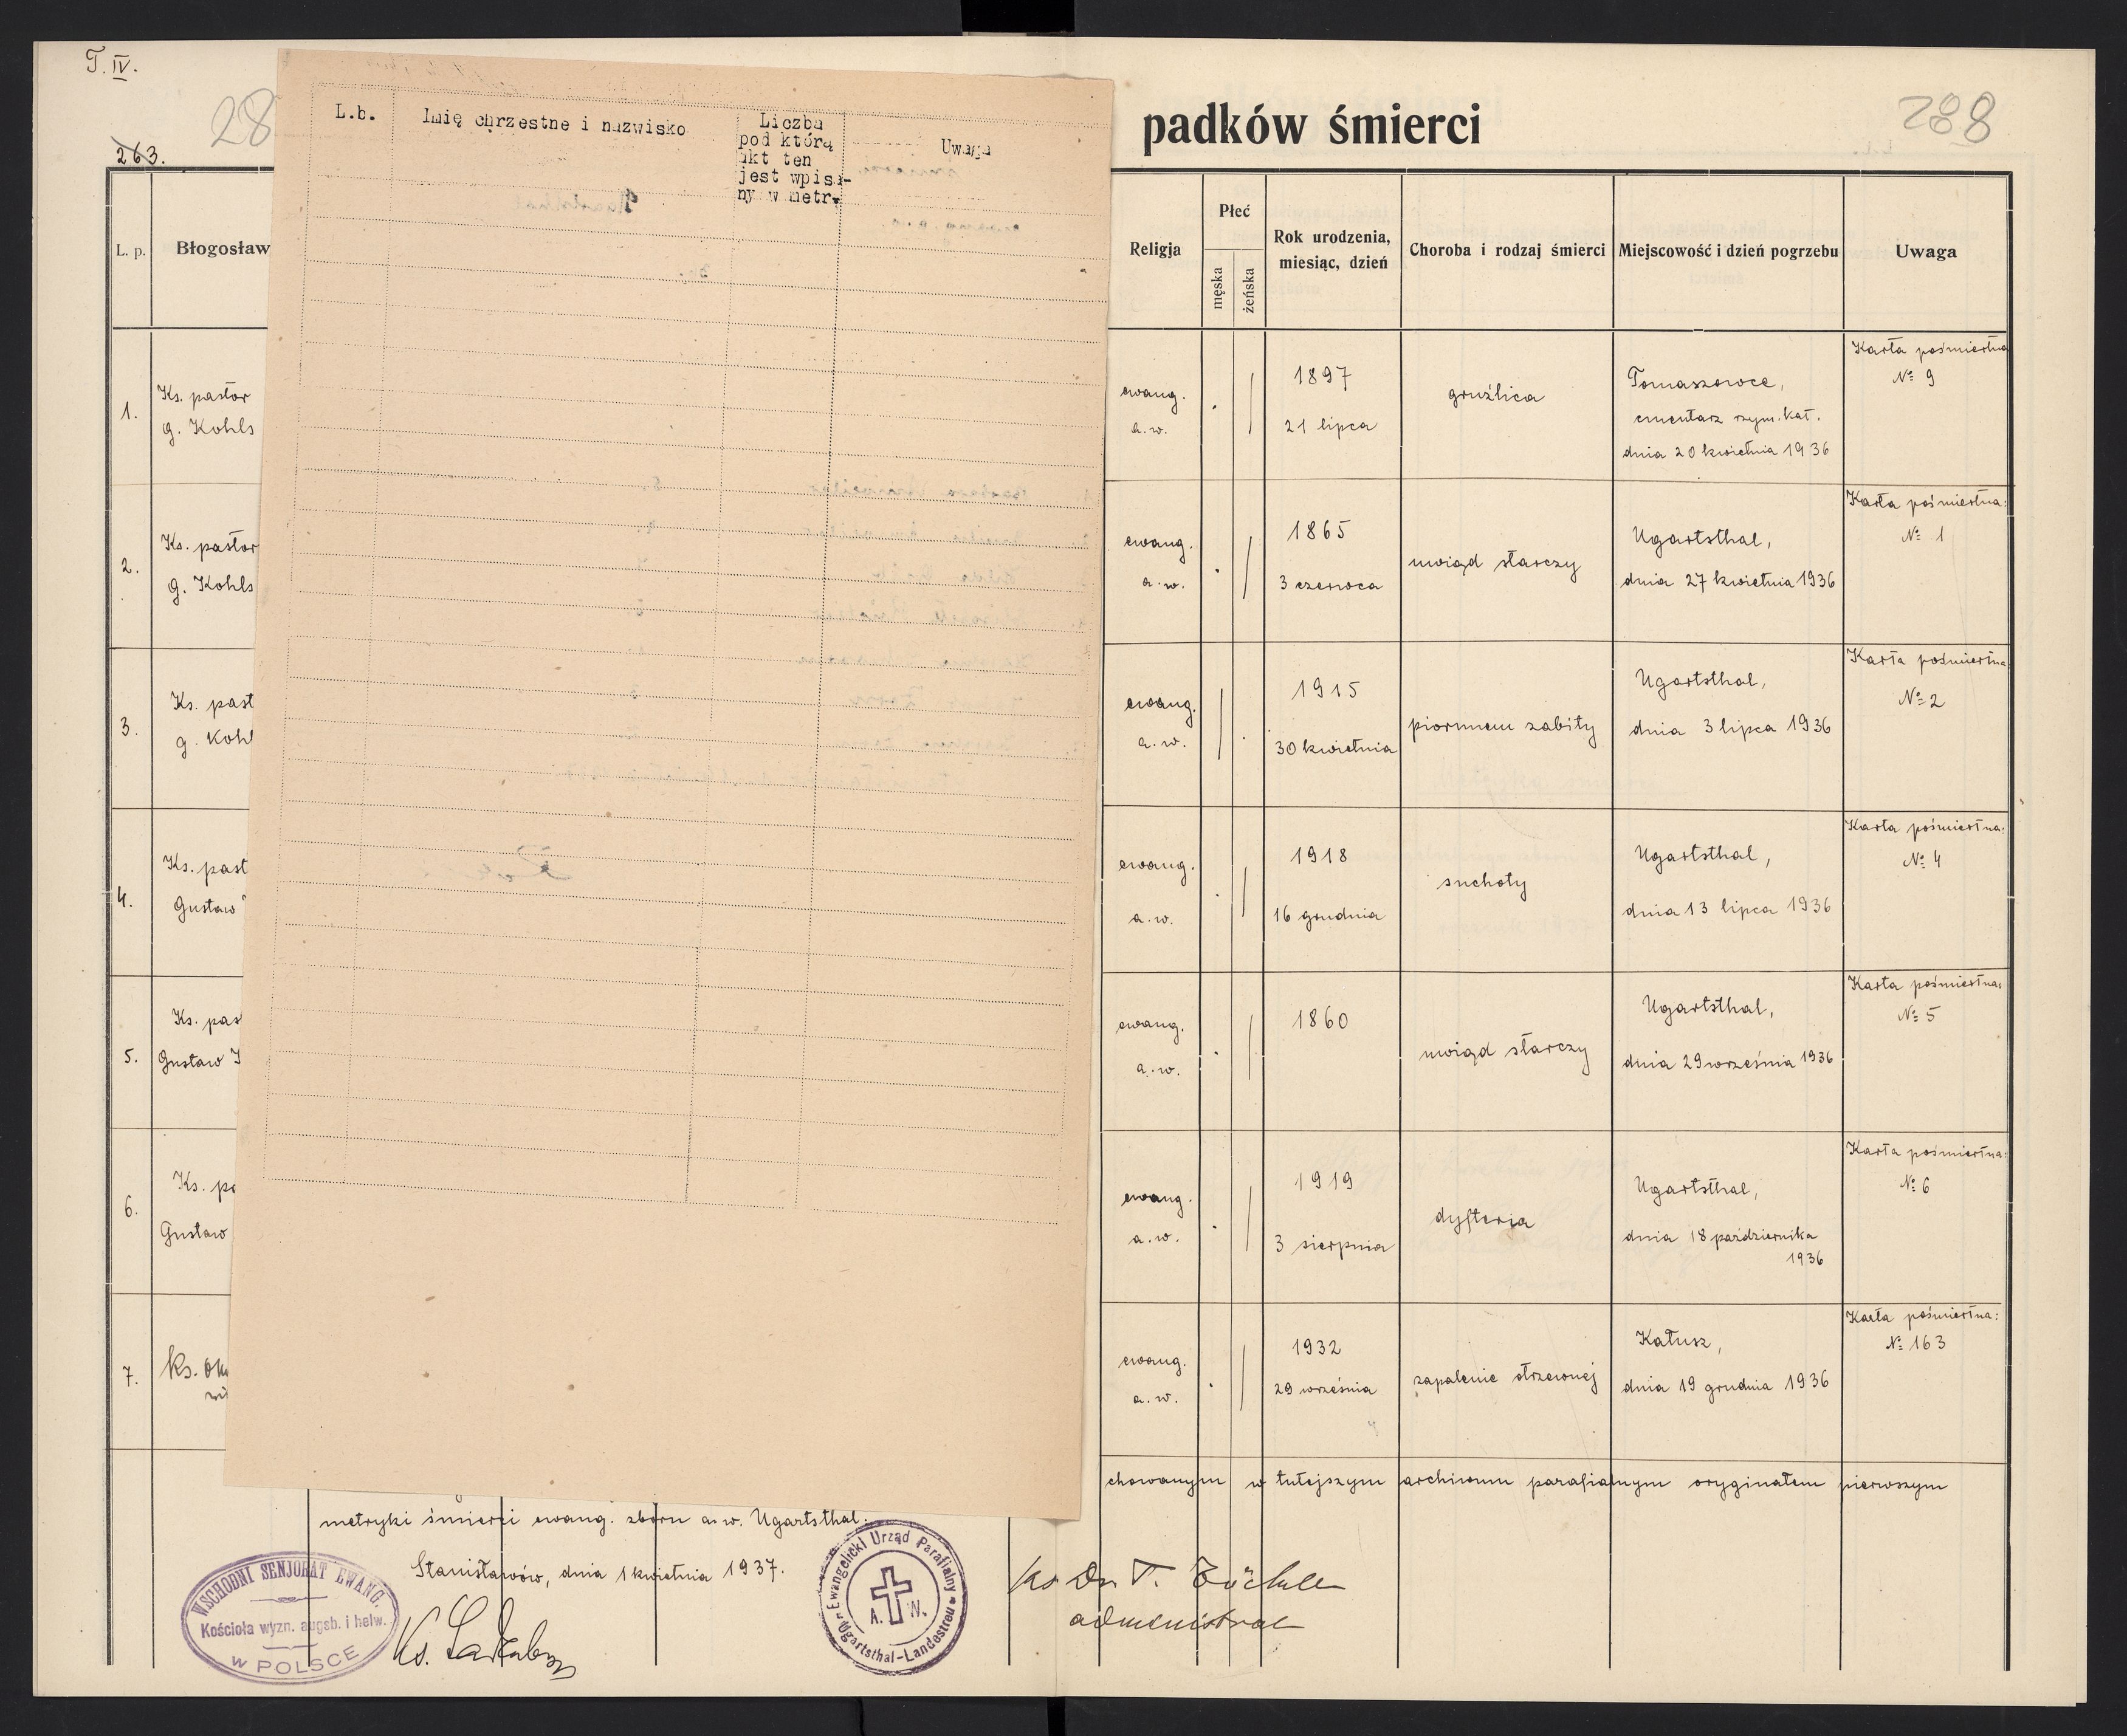 T. IV.
28
263.
padków śmierci
288
L. p.
Błogosław
L.b.
Imię chrzestne i nazwisko
Liczba
pod którą
akt ten
jest wpisa-
ny w metr.
Uwaga
Religja
Płeć
męska
żeńska
Rok urodzenia,
miesiąc, dzień
Choroba i rodzaj śmierci
Miejscowość i dzień pogrzebu
Uwaga
1.
Ks. pastor
g. Kohls
ewang.
a. w.
1897
21 lipca
gruźlica
Tomaszowce,
cmentarz rzym. kat.
dnia 20 kwietnia 1936
Karta pośmiertna
№ 9
2.
Ks. pastor
g. Kohls
ewang.
a. w.
1865
3 czerwca
uwiąd starczy
Ugartsthal,
dnia 27 kwietnia 1936
Karta pośmiertna:
№ 1
3.
Ks. past
g. Kohl
ewang.
a. w.
1915
30 kwietnia
piorunem zabity
Ugartsthal,
dnia 3 lipca 1936
Karta pośmiertna
№ 2
4.
Ks. past
Gustaw
ewang.
a. w.
1918
16 grudnia
suchoty
Ugartsthal,
dnia 13 lipca 1936
Karta pośmiertna:
№ 4
5.
Ks. pas
Gustaw
ewang.
a. w.
1860
uwiąd starczy
Ugartsthal,
dnia 29 września 1936
Karta pośmiertna:
№ 5
6.
Ks. pa
Gustaw
ewang.
a. w.
1919
3 sierpnia
dyfterja
Ugartsthal,
dnia 18 października
1936
Karta pośmiertna:
№ 6
7.
Ks.
ewang.
a. w.
1932
29 września
zapalenie otrzewnej
Kałusz,
dnia 19 grudnia 1936
Karta pośmiertna:
№ 163
chowanym w tutejszym archiwum parafialnym oryginałem pierwszym
metryki śmierci ewang. zboru a. w. Ugartsthal.
Stanisławów, dnia 1 kwietnia 1937.
WSCHODNI SENJORAT EWANG.
Kościoła wyzn. augsb. i helw.
w POLSCE
Ks.
Ewangelicki Urząd Parafialny
A. W.
Ugartsthal-Landestreu
Ks. Dr. T. Zöckler
administrat